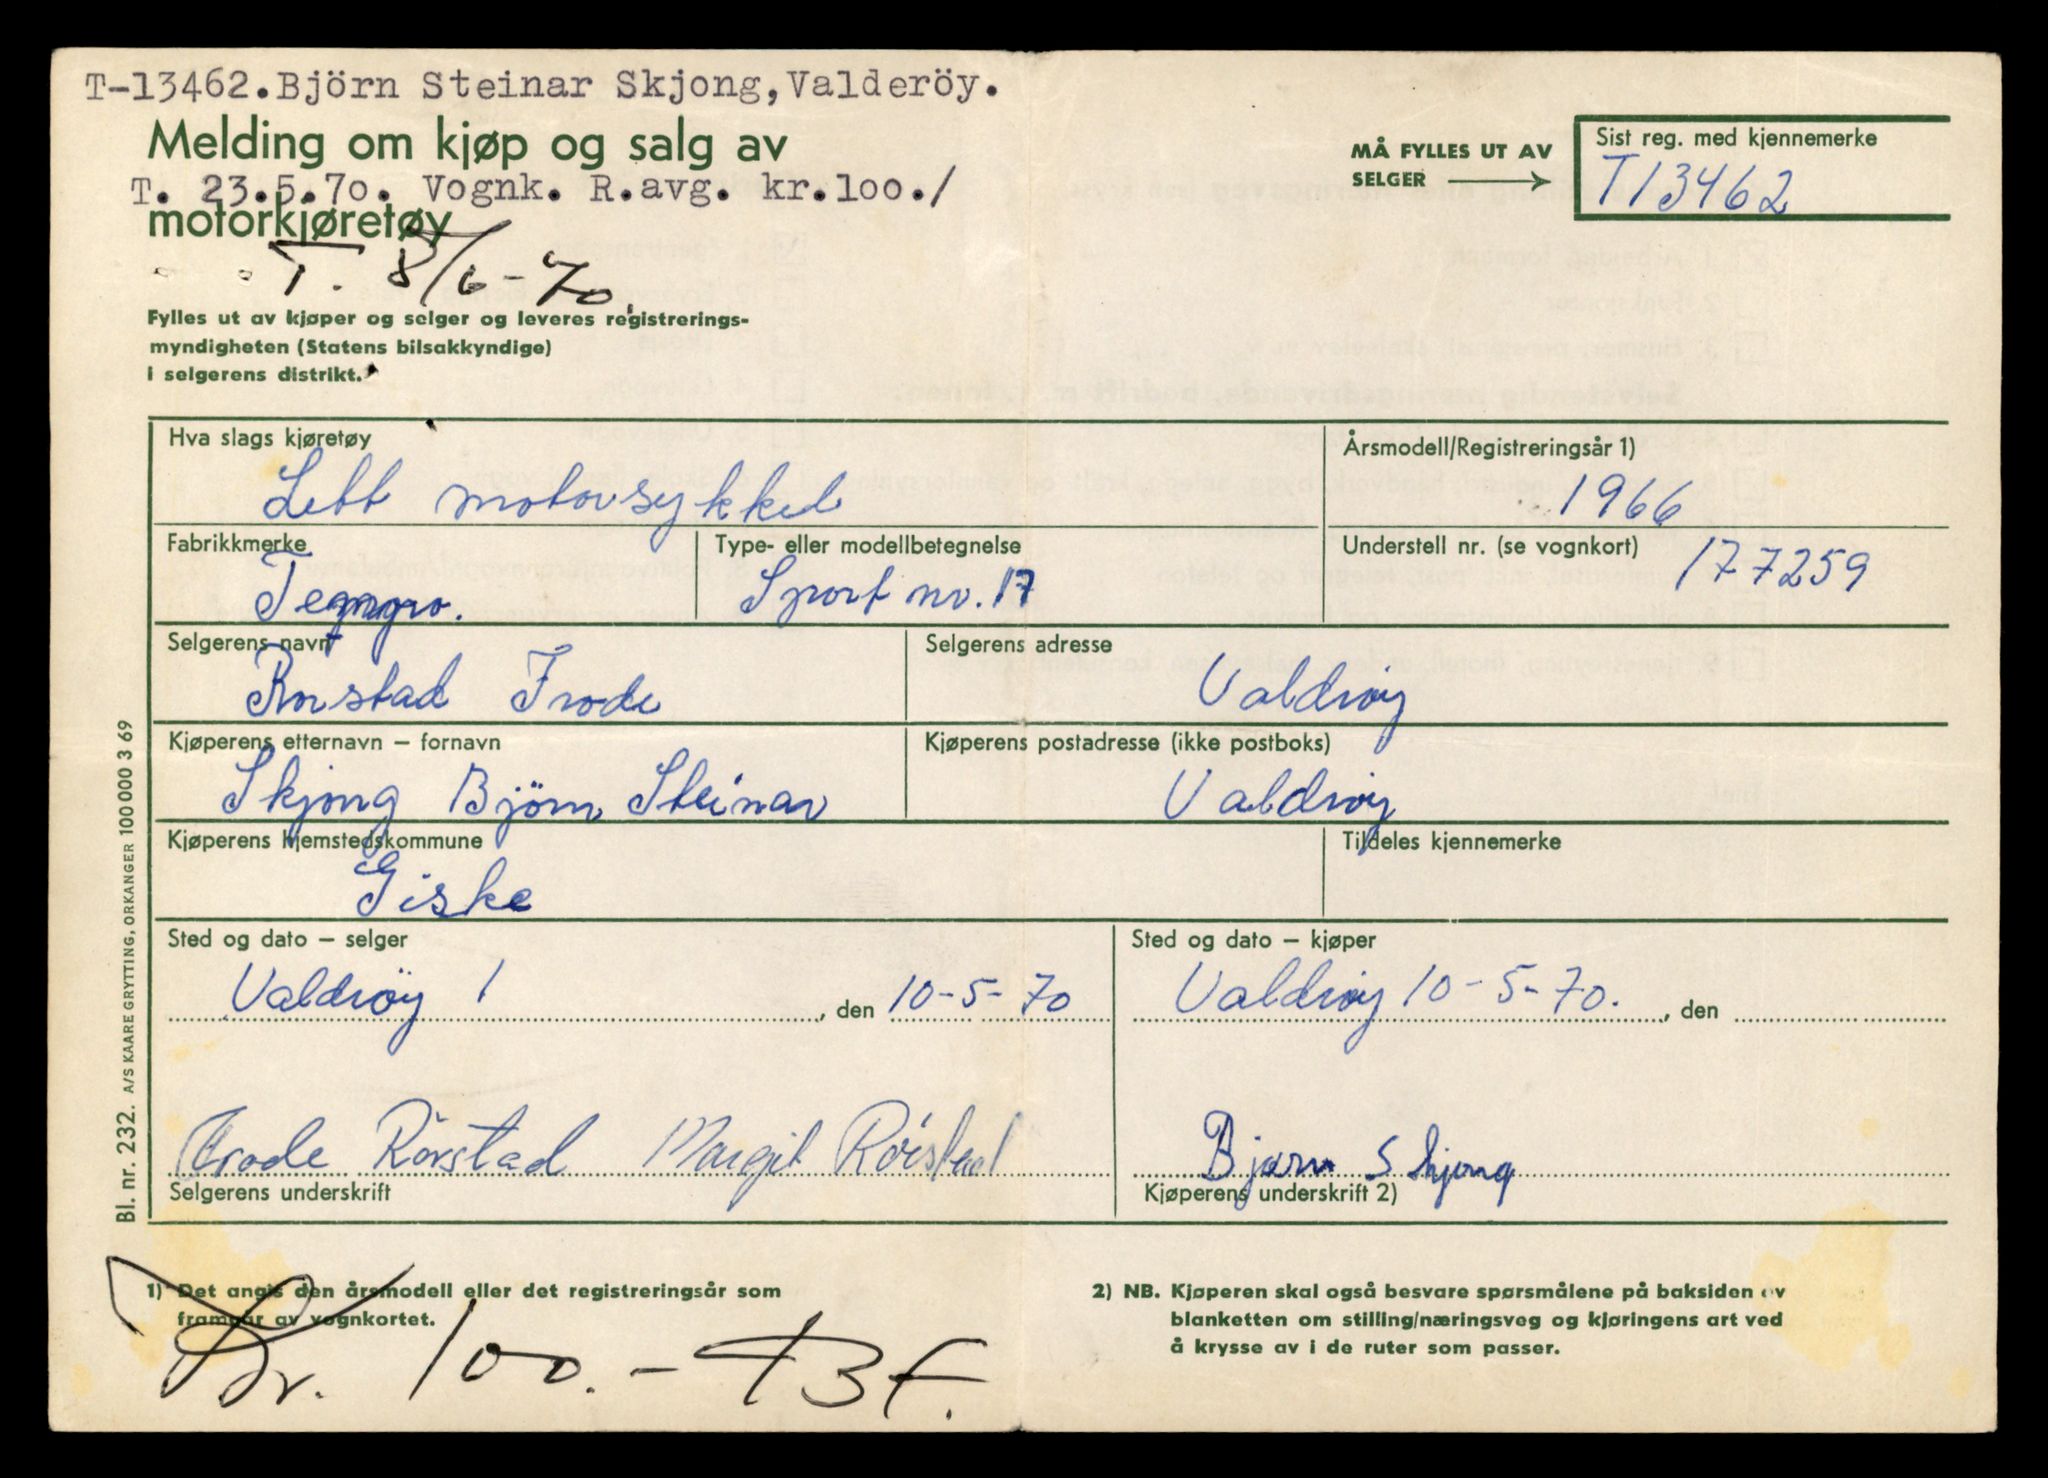 T-13462.Björn Steinar Skjong,Valderöy.
Melding om kjøp og salg av
T. 23.5.70. Vognk. R.avg. kr.100./
motorkjøretøy
T. 8/6-70.
Fylles ut av kjøper og selger og leveres registrerings-
myndigheten (Statens bilsakkyndige)
i selgerens distrikt.
MÅ FYLLES UT AV
SELGER
Sist reg. med kjennemerke
T13462
Hva slags kjøretøy
Lett motorsykkel
Årsmodell/Registreringsår 1)
1966
Fabrikkmerke
Type- eller modellbetegnelse
Sport nr. 17
Understell nr. (se vognkort)
177259
Selgerens navn
Rorstad Frode
Selgerens adresse
Valdrøy
Kjøperens etternavn – fornavn
Skjong Björn Steinar
Kjøperens postadresse (ikke postboks)
Valdrøy
Kjøperens hjemstedskommune
Giske
Tildeles kjennemerke
Sted og dato – selger
Valdröy 1, den 10-5-70
Sted og dato – kjøper
Valdrøy 10-5-70., den
Frode Rörstad Margit Rörstad
Selgerens underskrift
Bjørn Skjong
Kjøperens underskrift 2)
1) Det angis den årsmodell eller det registreringsår som
framgår av vognkortet.
Kr. 100.-
2) NB. Kjøperen skal også besvare spørsmålene på baksiden av
blanketten om stilling/næringsveg og kjøringens art ved
å krysse av i de ruter som passer.
Bl. nr. 232. A/S KAARE GRYTTING, ORKANGER 100 000 3 69